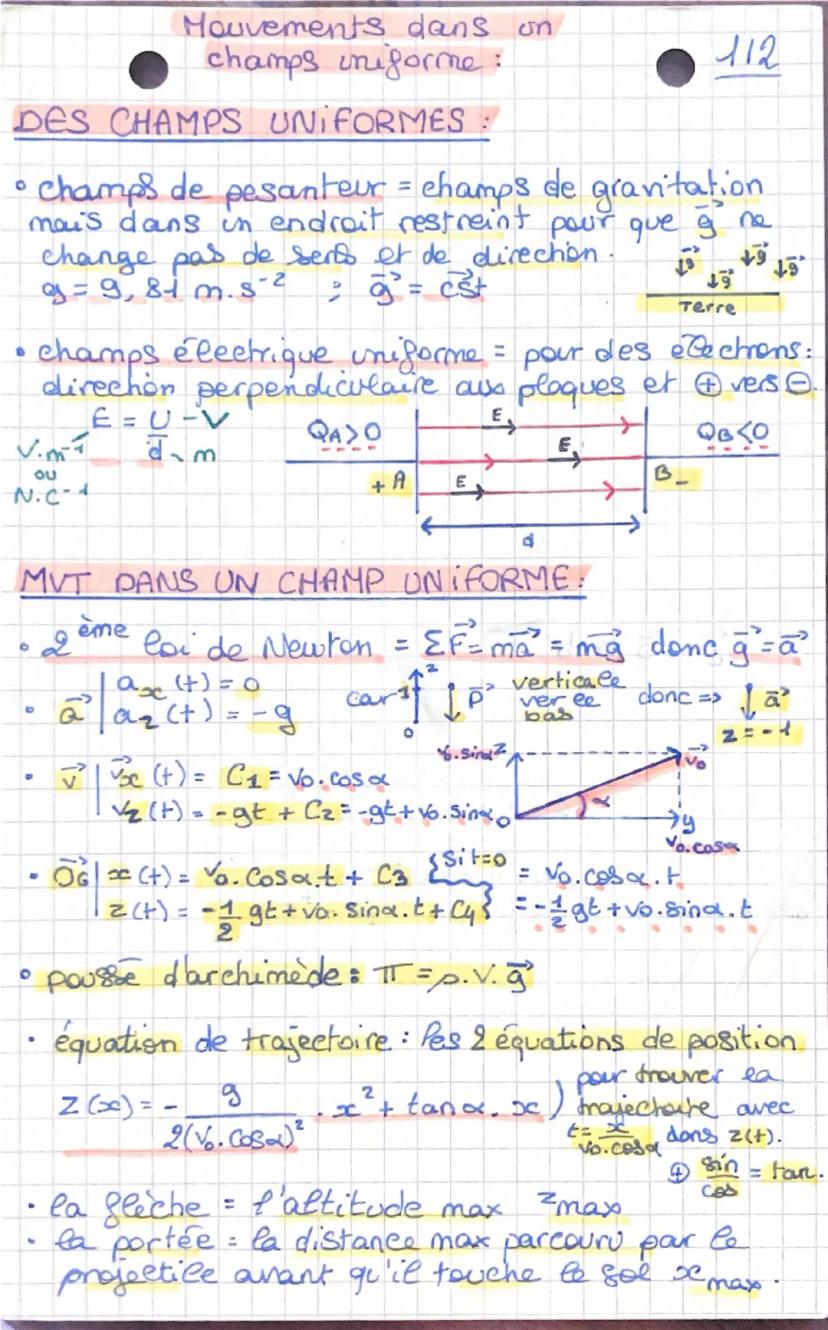 Mouvements dans un
champs uniforme :
112
DES CHAMPS UNIFORMES :
• champs de pesanteur = champs de gravitation
mais dans un endroit restreint pour que g⃗ ne
change pas de sens et de direction.
g = 9,81 m.s⁻² ; g⃗ = cst⃗
↓g⃗ ↓g⃗ ↓g⃗ ↓g⃗
Terre
• champs électrique uniforme = pour des électrons :
direction perpendiculaire aux plaques et ⊕ vers ⊖.
E = U/d - V
m
V.m⁻¹
ou
N.C⁻¹
QA>0
E
E
E
QB<0
+ A
B -
d
MVT DANS UN CHAMP UNIFORME :
• 2ème loi de Newton = ΣF⃗ = ma⃗ = mg⃗ donc g⃗ = a⃗
• a⃗ | ax(t) = 0
az(t) = -g
car 1 z 0 ↓ P⃗ verticale
ver le
bas
donc => ↓ a⃗
z = -1
• v⃗ | v⃗x(t) = C1 = v0.cosα
vz(t) = -gt + C2 = -gt + v0.sinα
v0.sinα z
v⃗0
α
0
y
v0.cosα
• OG⃗ | x(t) = v0.cosα.t + C3 {Si t=0 = v0.cosα.t
z(t) = -1/2 gt + v0.sinα.t + C4} = -1/2 gt + v0.sinα.t
• poussé d'archimède : π = ρ.V.g⃗
• équation de trajectoire : les 2 équations de position
z(x) = - g/2(v0.cosα)² . x² + tanα.x )
pour trouver la
trajectoire avec
t = x/v0.cosα dans z(t).
⊕ sin/cos = tan.
• la flèche = l'altitude max zmax
• la portée = la distance max parcouru par le
projectile avant qu'il touche le sol xmax.